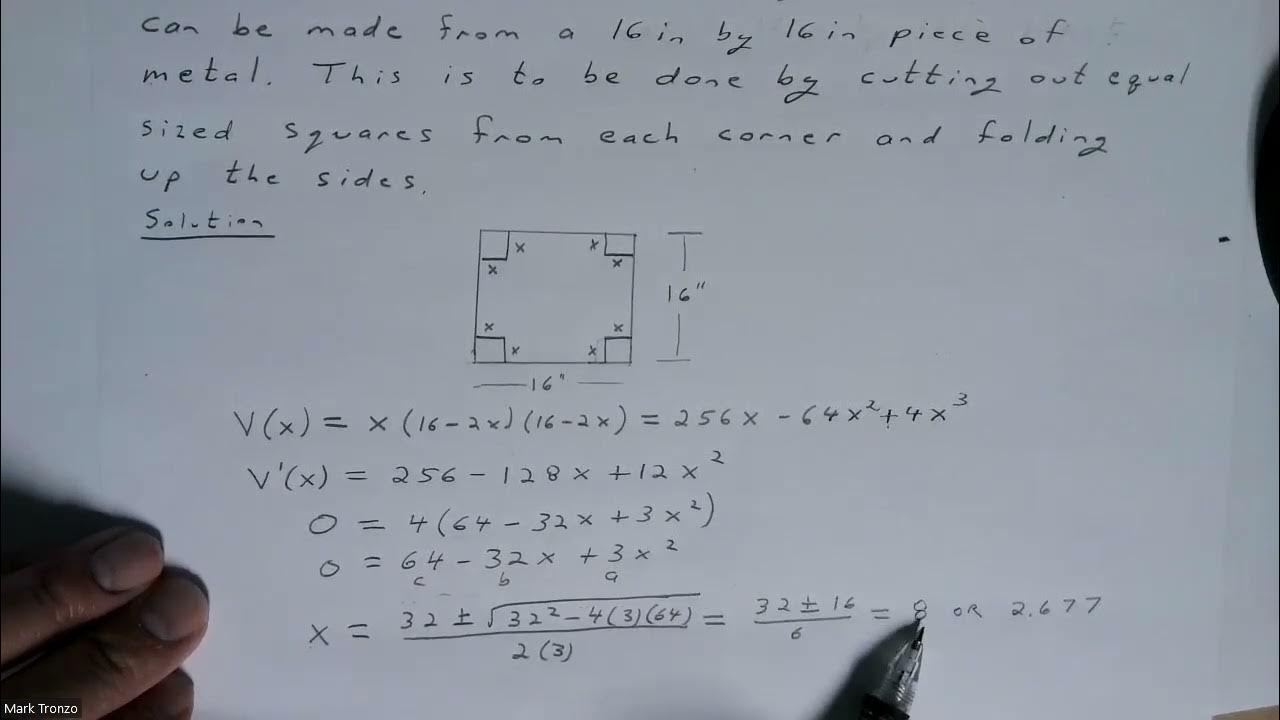 can be made from a 16in by 16in piece of
metal. This is to be done by cutting out equal
sized squares from each corner and folding
up the sides.
Solution
x x
x x
16"
x x
x x
16"
V(x) = x(16-2x)(16-2x) = 256x - 64x²+4x³
V'(x) = 256 - 128x +12x²
0 = 4(64 - 32x +3x²)
0 = 64 - 32x +3x²
c b a
x = 32 ± √32² - 4(3)(64) / 2(3) = 32 ± 16 / 6 = 8 OR 2.677
Mark Tronzo